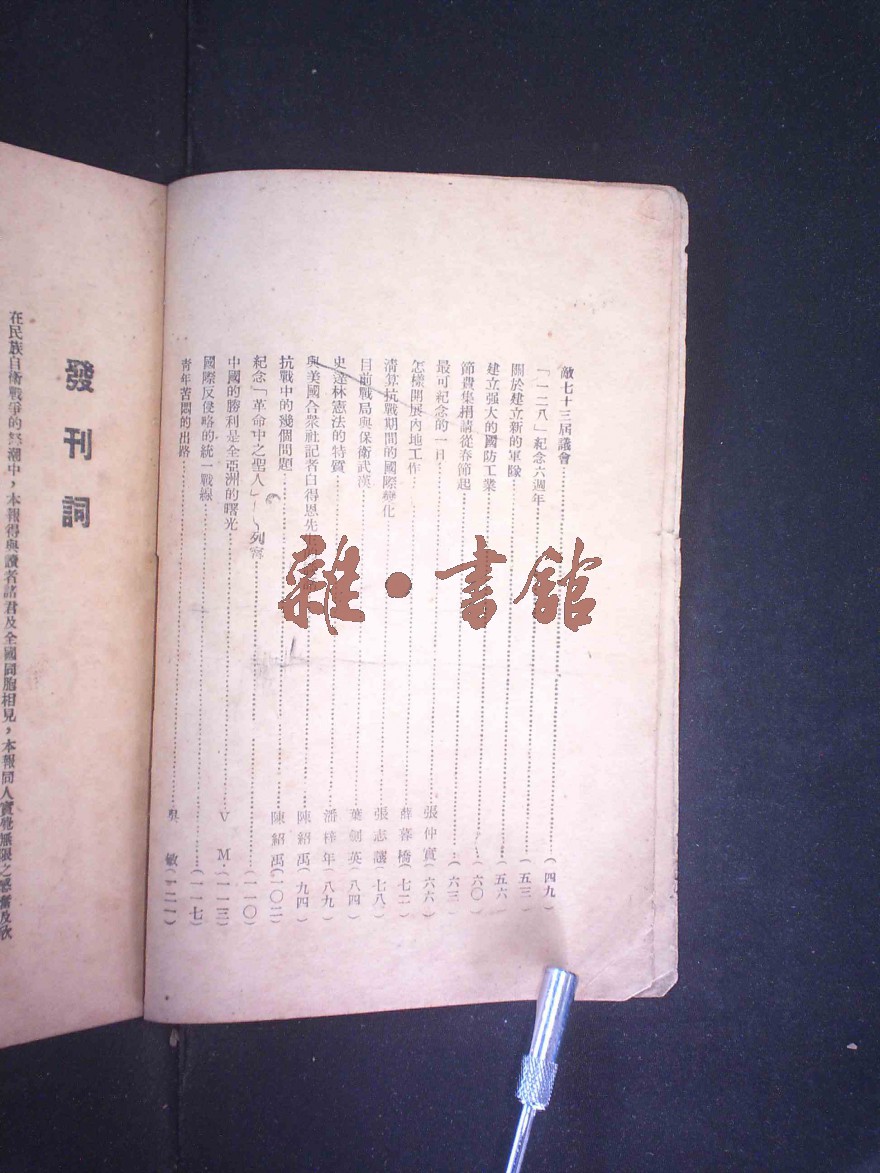 敵七十三屆議會………(四九)
「一二八」紀念六週年………(五三)
關於建立新的軍隊………(五六)
建立强大的國防工業………(六〇)
節費集捐請從春節起………(六二)
最可紀念的一日………張仲實(六六)
怎樣開展內地工作………薛暮橋(七二)
清算抗戰期間的國際變化………張志讓(七八)
目前戰局與保衛武漢………葉劍英(八四)
史達林憲法的特質………潘梓年(八九)
與美國合衆社記者白得恩先………陳紹禹(九四)
抗戰中的幾個問題………陳紹禹(一〇二)
紀念「革命中之聖人」——列寧………(一一〇)
中國的勝利是全亞洲的曙光………V M(一一三)
國際反侵略的統一戰線………(一一七)
青年苦悶的出路………吳 敏(一二一)
雜·書館
發刊詞
在民族自衛戰爭的怒潮中,本報得與讀者諸君及全國同胞相見,本報同人實覺無限之感奮及欣